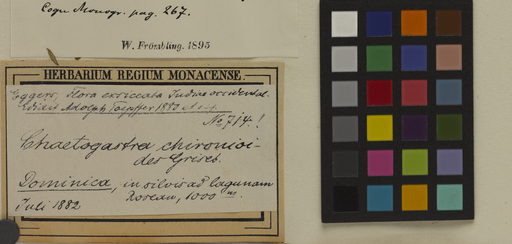 Cogn Monogr. pag. 267.
W. Frömbling. 1895
HERBARIUM REGIUM MONACENSE.
Eggers, Flora exsiccata Indiae occidental.
Edidit Adolph Toepffer 1883
No 714.!
Chaetogastra chironioi-
des Griseb.
Dominica, in silvis ad lagunam
Juli 1882 1000 m.